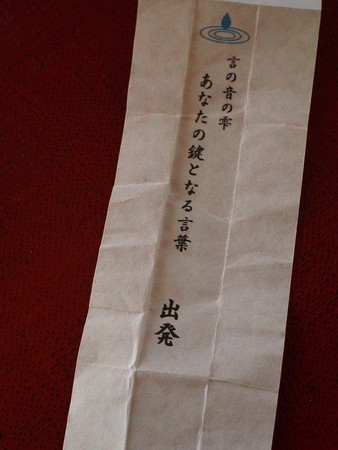 言の音の雫
あなたの鍵となる言葉
出発